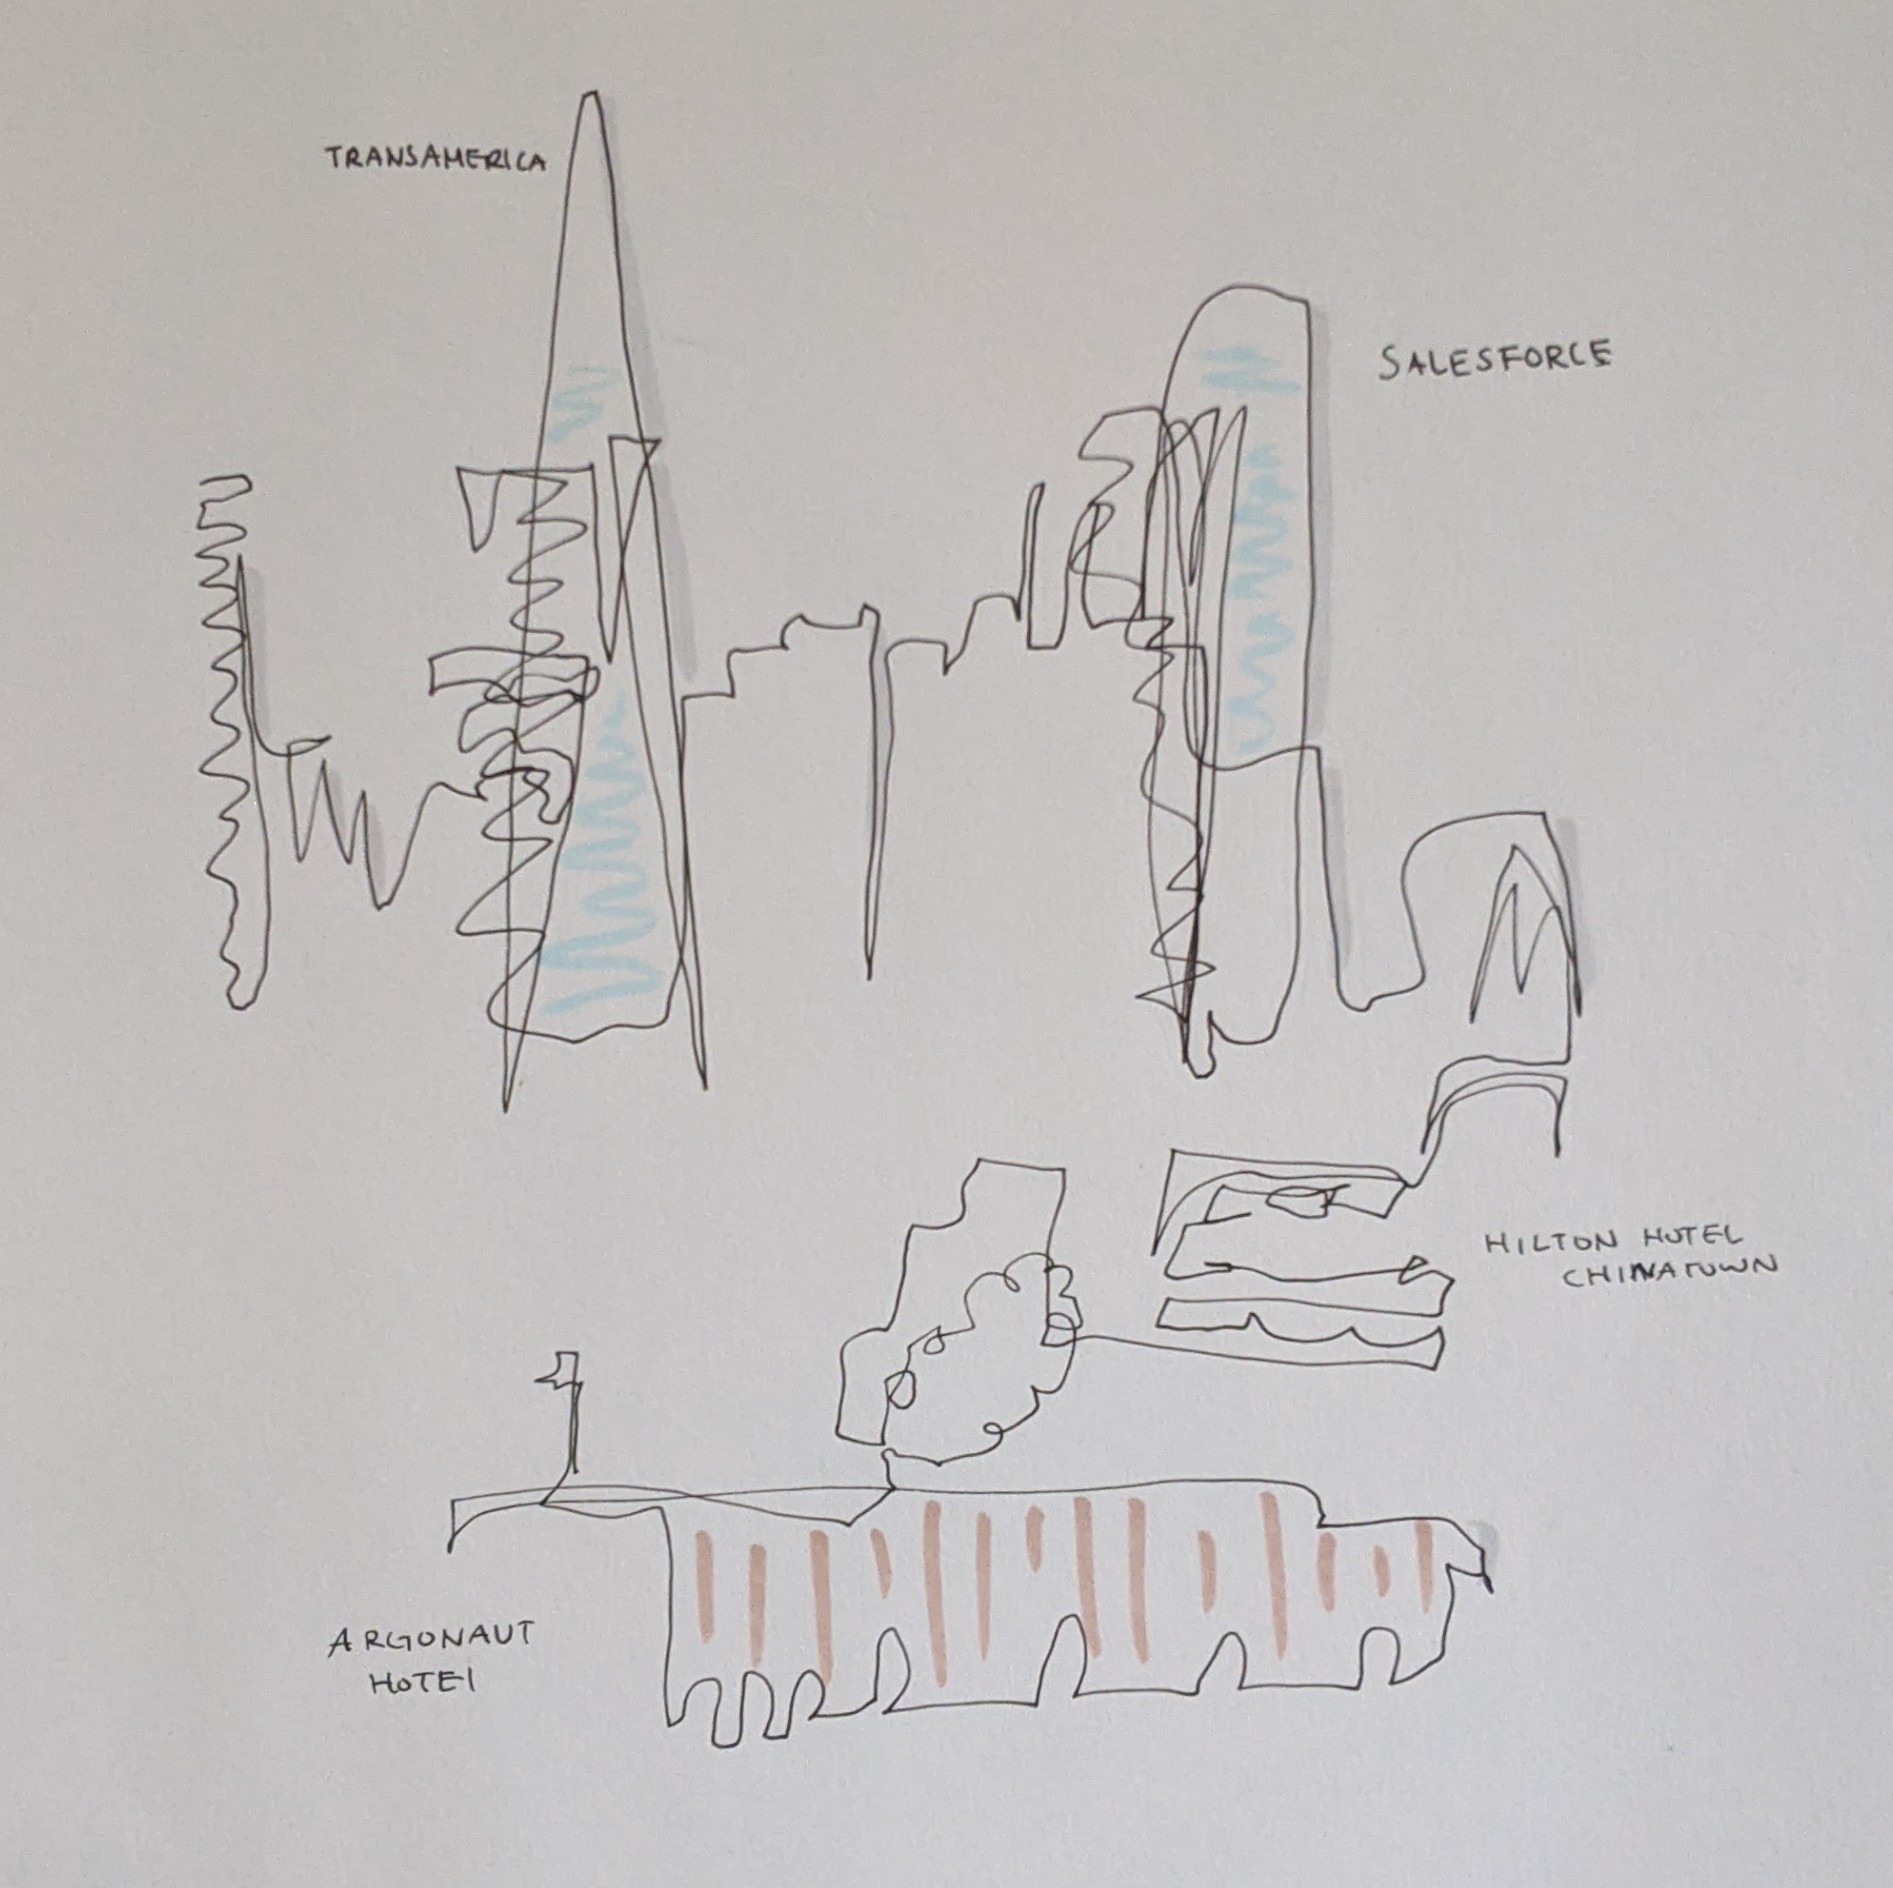 TRANSAMERICA
SALESFORCE
HILTON HOTEL
CHINATOWN
ARGONAUT
HOTEl